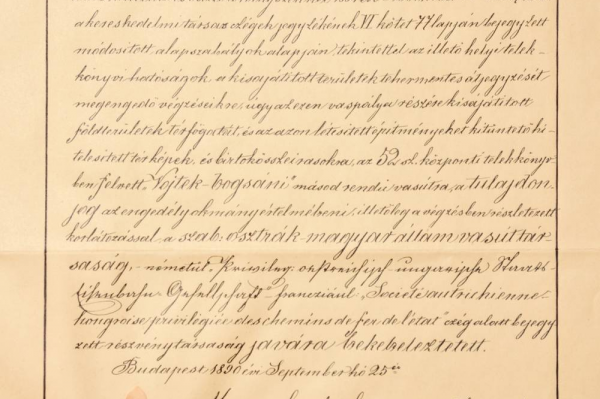 a kereskedelmi társas czégek jegyzékének VI kötet 77 lapján bejegyzett
módosított alapszabályok alapján, tekintettel az illető helyi telek-
könyvi hatóságok, a kisajátított területek tehermentes átjegyzését
megengedő végzéseikre, úgy az ezen vaspálya részére kisajátított
földterületek térfogatát, és az azon létesített építményeket kitüntető hi-
telesitett térképek és birtokösszeirásokra, az 52 sz. központi telekkönyv-
ben felvett "Vojtek-bogsáni" másod rendű vasútra, a tulajdon
jog az engedélyokmány értelmébeni, illetőleg a végzésben részletezett
korlátozással a szab. osztrák-magyar állam vasúttár-
saság, - németül "Privileg. östreichisch ungarische Staats-
Eisenbahn-Gesellschaft" francziául "Societé autrichienne-
hongroise privilégiée des chemins de fer de l'état" czég alatt bejegy-
zett részvénytársaság javára bekebeleztetett.
Budapest 1890 évi September hó 25én